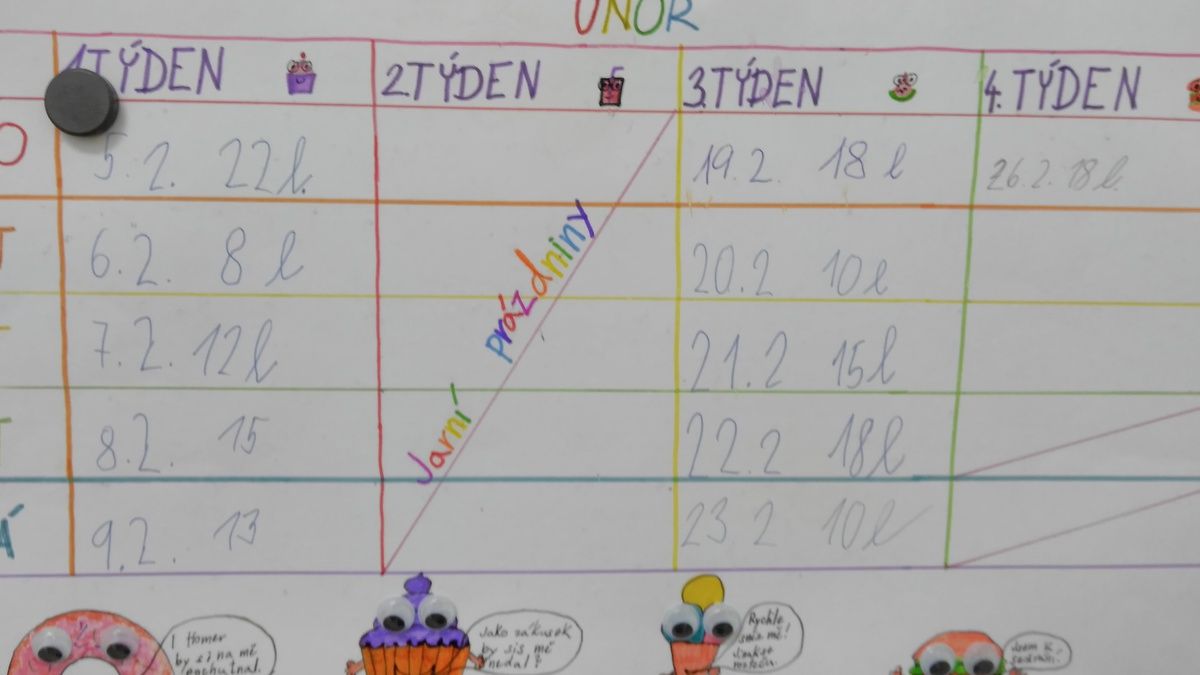 ÚNOR
1 TÝDEN 2 TÝDEN 3. TÝDEN 4. TÝDEN
O 5.2. 22 l. 19.2. 18 l 26.2. 18 l.
6.2. 8 l 20.2 10 l
7.2. 12 l 21.2 15 l
8.2. 15 22.2 18 l
Á 9.2. 13 23.2 10 l
Jarní prázdniny
I Homer
by si na mě
pochutnal.
Jako zákusek
by sis mě
nedal?
Rychle
sněz mě!
Jsem